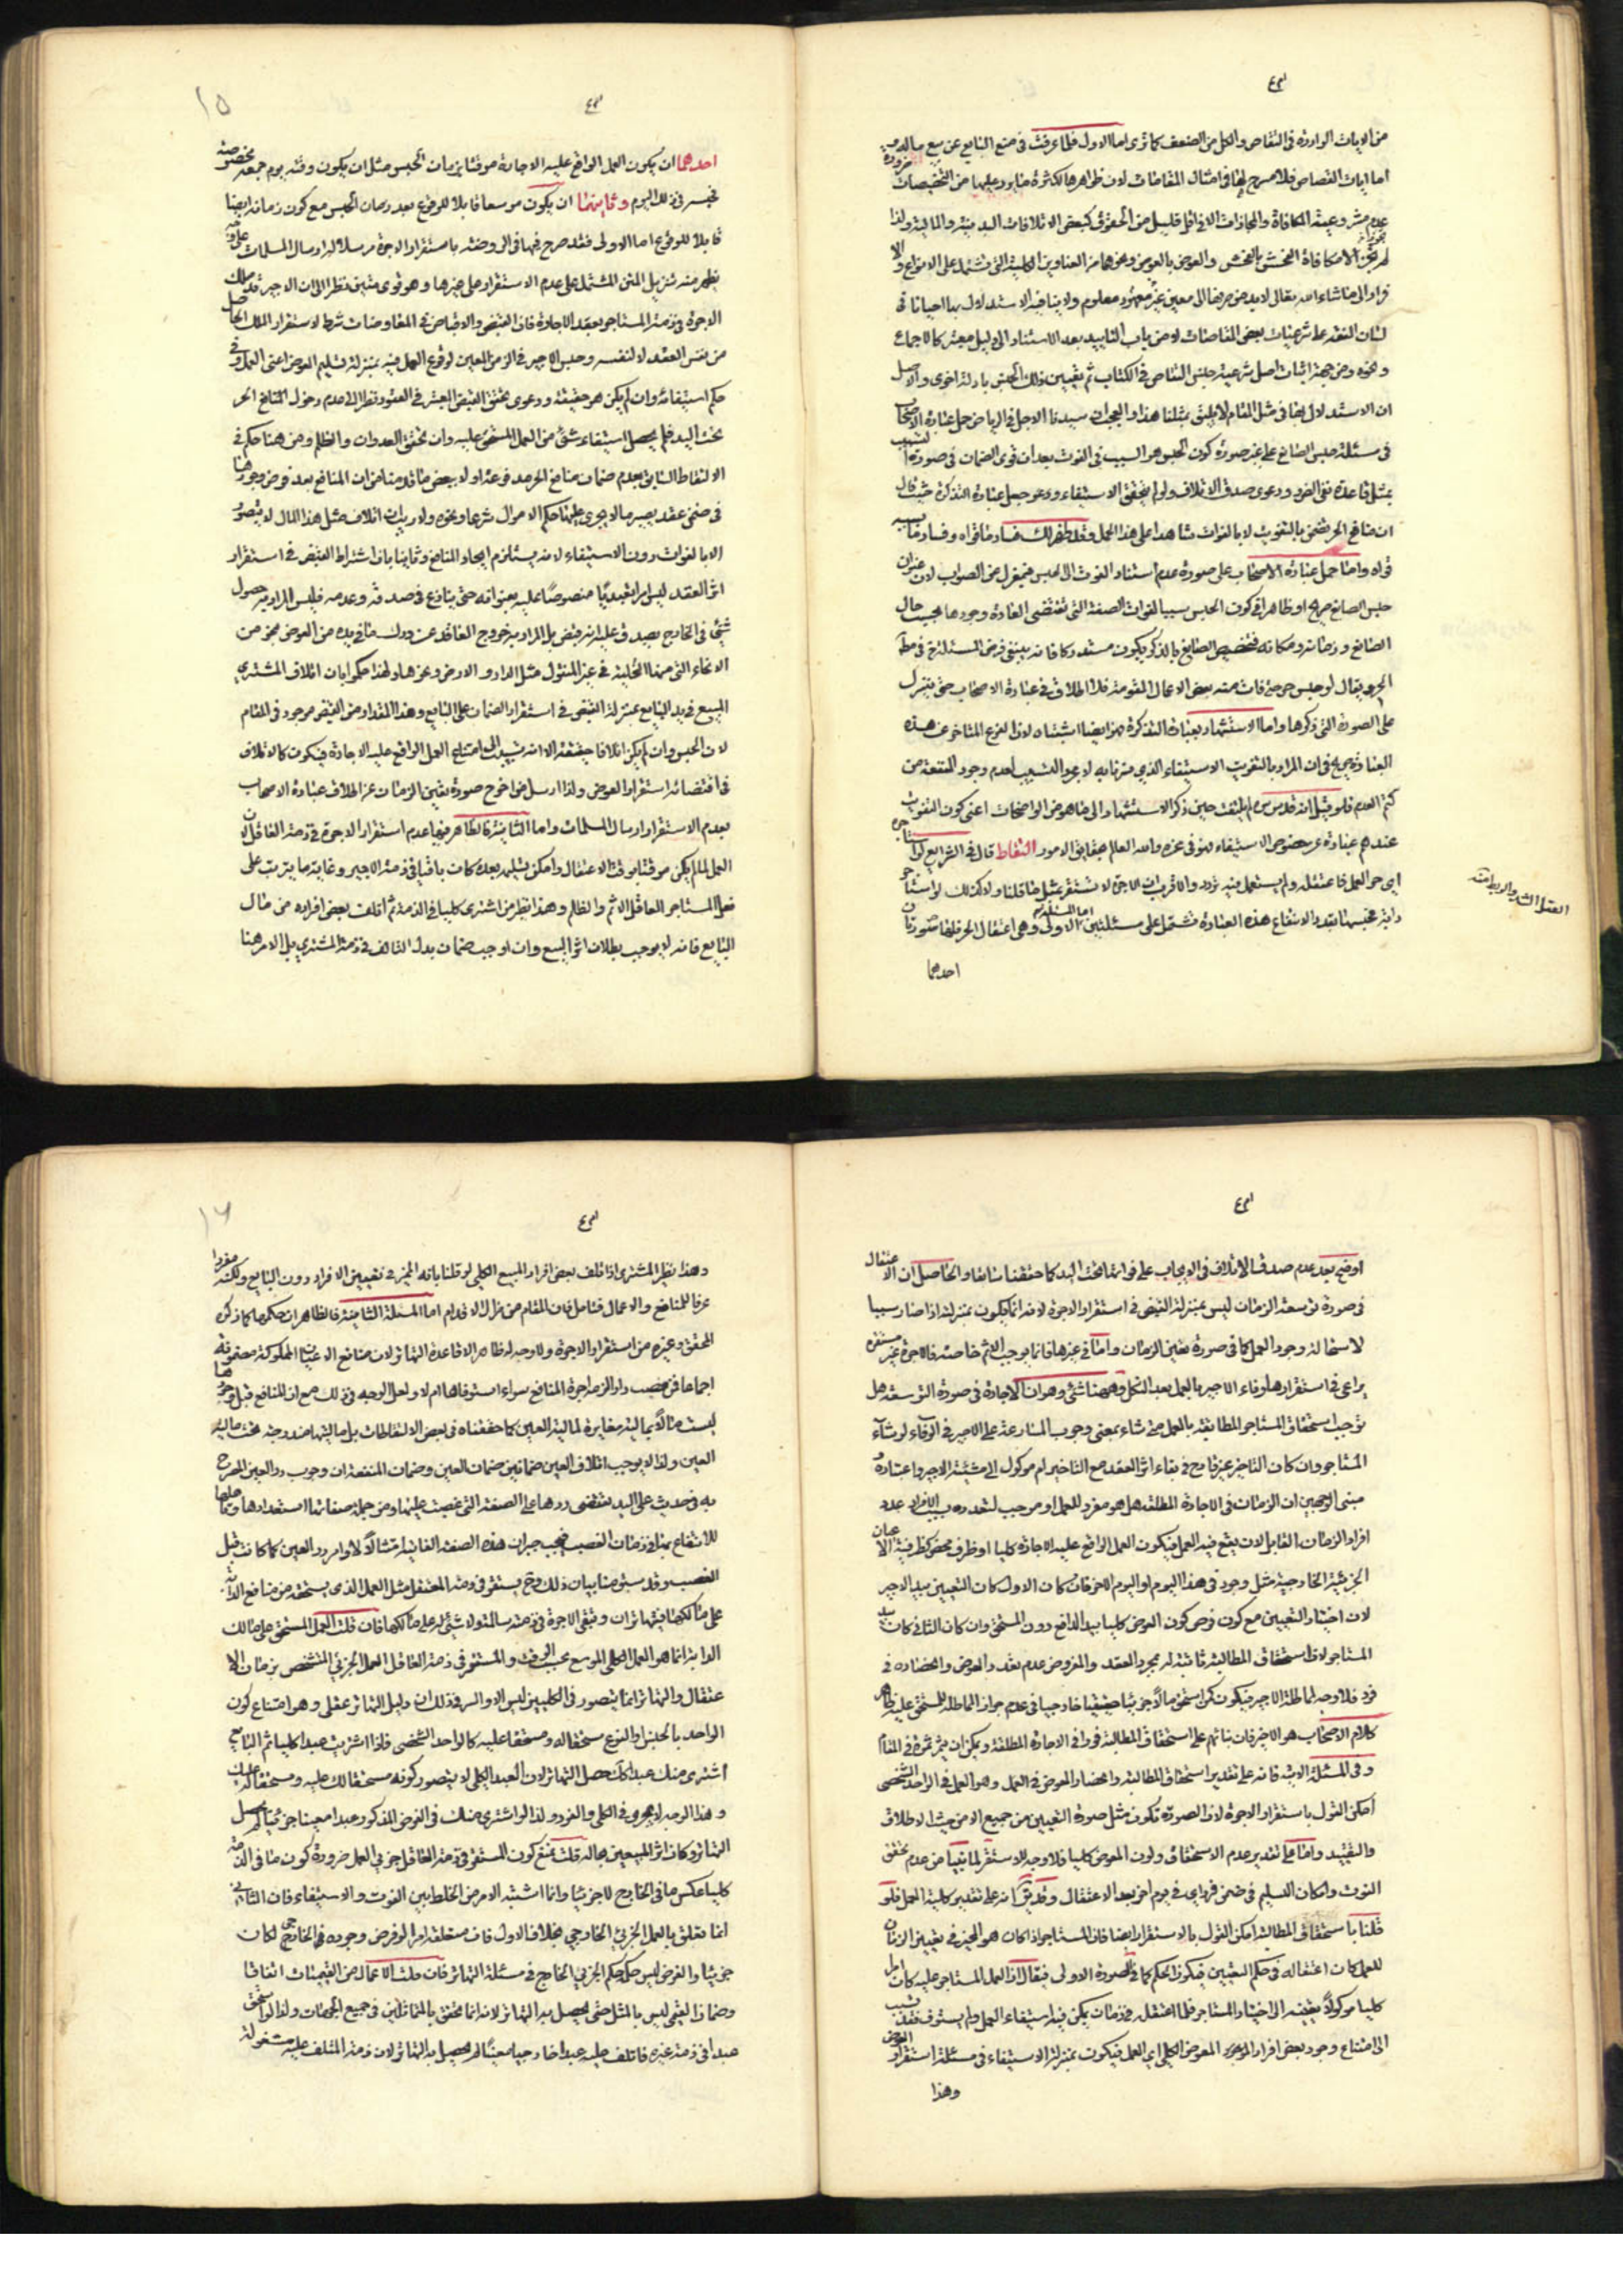 من الايات الواردة فى التقاص والكل من الضعف كما ترى اما الاول فلما عرفت فى منع البايع عن بيع ماله
اما ايات القصاص فلا مسرح لها فى امثال المقامات لان ظواهرها لكثرة ما يرد عليها من التخصيصات
عدم مشروعية المكافاة والمجازات الا فى اقل قليل من الحقوق كبعض الاتلافات البدنية والمالية ولذا
لم يجز مكافاة الفحش بالفحش والعوض بالعوض ونحوهما من العناوين الكلية التى تشتمل على الانواع
لشان الفقه على شرعيات بعض المقاصات لا من باب التاييد بعد الاستناد الى دليل معتبر كالاجماع
ونحوه ومن جهة اثبات اصل شرعية جنس التقاص فى الكتاب ثم تعيين ذلك الجنس بادلة اخرى
ان الاستدلال بها فى مثل المقام لا يليق بمثلنا هذا والعجب ان سيدنا الاجل فى الرياض حمل عبارة الاصحاب
فى مسئلة حبس الصانع على غير صورة كون الحبس هو السبب فى الفوت بعد ان قوى الضمان فى صورة
بمثل قاعدة نفى الضرر ودعوى صدق الاتلاف ولو لم يتحقق الاستيفاء وجعل عبارة التذكرة حيث قال
ان منافع الحر تضمن بالتفويت لا بالفوات شاهدا على هذا الحمل وقد ظهر لك فساد ما قواه
قواه واما حمل عبارة الاصحاب على صورة عدم استناد الفوت الى الحبس فبمعزل عن الصواب لان عنوان
حبس الصانع صريح او ظاهر فى كون الحبس سببا لفوات الصفة التى تقتضى العادة وجودها بحسب حال
الصانع وزمانه ومكانه فتخصيص الصانع بالذكر يكون مستدركا فانه ينبغى فرض المسئلة فى مطلق
الحر ويقال لو حبس حر حتى فات منه بعض الاعمال المقومة فلا اطلاق فى عبارة الاصحاب حتى ينزل
على الصورة التى ذكرها واما الاستشهاد بعبارة التذكرة فهو ايضا اشتباه لان الفرع المتاخر عن هذه
العبارة صريح فى ان المراد بالتفويت الاستيفاء الذى صرنا به لا مجرد التسبيب لعدم وجود المنفعة من
كتم العدم فلو قيل انه قدس سره لم يلتفت حين ذكر الاستشهاد الى ما هو من الواضحات اعنى كون التفويت
عندهم عبارة عن خصوص الاستيفاء لهو فى محله والله العالم بحقايق الامور التقاط قال فى الشرايع لو استاجر
دابة فحبسها بقدر الانتفاع هذه العبارة تشتمل على مسئلتين اما المسئلة الاولى وهى اعتقال الحر فلها صورتان
احدهما
احدهما ان يكون العمل الواقع عليه الاجارة موقتا بزمان الحبس مثل ان يكون وقته يوم جمعة مخصوصة
فحبسه فى ذلك اليوم وثانيتهما ان يكون موسعا قابلا للوقوع بعد زمان الحبس مع كون زمانه ايضا
قابلا للوقوع اما الاولى فقد صرح فيها فى الروضة باستقرار الاجرة مرسلا له ارسال المسلمات
يظهر منه تنزيل المتن المشتمل على عدم الاستقرار على غيرها وهو قوى متين نظرا الى ان الاجير قد ملك
الاجرة فى ذمة المستاجر بعقد الاجارة فان القبض والاقباض فى المعاوضات شرط لاستقرار الملك الحاصل
من نفس العقد لا لنفسه وحبس الاجير فى الزمن المعين لوقوع العمل فيه بمنزلة تسليم العوض اعنى العمل
حكم استيفائه وان لم يكن هو حقيقة ودعوى تحقق القبض المعتبر فى العقود نظرا الى عدم دخول منافع الحر
تحت اليد فلم يحصل استيفاء شئ من العمل المستحق عليه وان تحقق العدوان والظلم ومن هنا حكم فى
الالتقاط السابق بعدم ضمان منافع الحر مدفوعة اولا ببعض ما قدمنا من ان المنافع بعد فرض وجودها
فى ضمن عقد يصير مالا يجرى عليها حكم الاموال شرعا ونحوه ولا ريب ان اتلاف مثل هذا المال لا يتصور
الا بالفوات دون الاستيفاء لانه يستلزم ايجاد المنافع وثانيا بان اشتراط القبض فى استقرار
اثر العقد ليس امرا تعبديا منصوصا عليه بعنوانه حتى ينازع فى صدقه وعدمه فليس المراد به حصول
شئ فى الخارج يصدق عليه انه قبض بل المراد به خروج العاقد عن درك ما فى يده من العوض بنحو من
الانحاء التى منها التخلية فى غير المنقول مثل الدار والارض وغيرها ولهذا حكموا بان اتلاف المشترى
المبيع فى يد البايع بمنزلة القبض فى استقرار الضمان على البايع وهذا المقدار من القبض موجود فى المقام
لان الحبس وان لم يكن اتلافا حقيقة الا انه تسبيب الى امتناع العمل الواقع عليه الاجارة فيكون كالاتلاف
فى اقتضائه استقرار العوض ولذا ارسل خروج صورة تعيين الزمان عن اطلاق عبارة الاصحاب
بعدم الاستقرار ارسال المسلمات واما الثانية فالظاهر فيها عدم استقرار الاجرة فى ذمة العاقل لان
العمل لما لم يكن موقتا بوقت الاعتقال وامكن تسليمه بعده كان باقيا فى ذمة الاجير وغاية ما يترتب على
فعل المستاجر العاقل الاثم والظلم وهذا نظير من اشترى كليا فى الذمة ثم اتلف بعض افراده من مال
البايع فانه لا يوجب بطلان اثر البيع وان اوجب ضمان بدل التالف فى ذمة المشترى بل الامر هنا
اوضح بعد عدم صدق الاتلاف فى الايجاب على فواته تحت اليد كما حققنا سابقا والحاصل ان الاعتقال
فى صورة توسعة الزمان ليس بمنزلة القبض فى استقرار الاجرة لانه انما يكون بمنزلة اذا صار سببا
لاستحالة وجود العمل كما فى صورة تعيين الزمان واما فى غيرها فانما يوجب الاثم خاصة فالاجرة غير مستقرة
يراعى فى استقرارها وفاء الاجير بالعمل بعد النكل وههنا شئ وهو ان الاجارة فى صورة التوسعة هل
توجب استحقاق المستاجر المطالبة بالعمل متى شاء بمعنى وجوب المسارعة على الاجير فى الوفاء لو شاء
المستاجر وان كان التاخير غير قادح فى بقاء اثر العقد مع التاخير ام موكول الى مشية الاجير واعتباره
مبنى الوجهين ان الزمان فى الاجارة المطلقة هل هو مفرد للعمل او موجب لتعدده بسبب
افراد الزمان القابل لان يقع فيه العمل فيكون العمل الواقع عليه الاجارة كليا او ظرف محض كظرفية الاعيان
الجزئية الخارجية مثل وجود فى هذا اليوم او اليوم الاخر فان كان الاول كان التعيين بيد الاجير
لان اختيار التعيين مع كون فرض كون العوض كليا بيد الدافع دون المستحق وان كان الثانى كان بيد
المستاجر لان استحقاق المطالبة ثابتة له بمجرد العقد والمفروض عدم تعدد العوض وانحصاره فى
فرد فلا وجه لمماطلة الاجير فيكون كمن استحق مالا جزئيا حقيقيا خارجيا فى عدم جواز المماطلة للمستحق عليه ظاهر
كلام الاصحاب هو الاخير فان بنائهم على استحقاق المطالبة فورا فى الاجارة المطلقة ويمكن ان يثمر ثمرة فى المقام
وفى المسئلة الاتية فانه على تقدير استحقاق المطالبة وانحصار العوض فى العمل وهو العمل فى الواحد الشخصى
امكن القول باستقرار الاجرة لان الصورة تكون مثل صورة التعيين من جميع الامر حيث الاطلاق
والتقييد واما على تقدير عدم الاستحقاق وكون العوض كليا فلا وجه للاستقرار لما بينا من عدم تحقق
الفوت وامكان التسليم فى ضمن فرد اى فى يوم اخر بعد الاعتقال وقد يق انه على تقدير كلية العمل فلو
قلنا باستحقاق المطالبة امكن القول بالاستقرار ايضا فان المستاجر اذا كان هو المخير فى تعيين الزمان
للعمل كان اعتقاله فى حكم التعيين فيكون الحكم كما فى الصورة الاولى فيقال ان العمل المستاجر عليه كان امرا
كليا موكولا تعيينه الى اختيار المستاجر فلما اعتقله فى زمان يمكن فيه استيفاء العمل ولم يستوف فقد تسبب
الى امتناع وجود بعض افراد المعوض الكلى اى العمل فيكون بمنزلة الاستيفاء فى مسئلة استقرار العوض
وهذا
وهذا نظير المشترى اذا تلف بعض افراد المبيع الكلى لو قلنا بانه المخير فى تعيين الافراد دون البايع ولكنه
عرفا للمنافع والاعمال فتامل فان المقام من مزال الاقدام اما المسئلة الثانية فالظاهر ان حكمها كما ذكره
المحقق وغيره من استقرار الاجرة ولا وجه له ظاهرا الا قاعدة التهاتر لان منافع الاعيان المملوكة مضمونة
اجماعا فمن غصب دارا لزمه اجرة المنافع سواء استوفاها ام لا ولعل الوجه فى ذلك مع ان المنافع قبل وجودها
ليست مالا بمالية مغايرة لمالية العين كما حققناه فى بعض الالتقاطات بل ماليتها مندرجة تحت مالية
العين ولذا لا يوجب اتلاف العين ضمانين ضمان العين وضمان المنفعة ان وجوب رد العين المصرح
به فى حديث على اليد يقتضى ردها على الصفة التى غصبت عليها ومن جملة صفاتها استعدادها
للانتفاع بها فى زمان الغصب فيجب جبران هذه الصفة الفائتة امتثالا لاوامر رد العين كما كانت قبل
الغصب وقد سبق منا بيان ذلك وح يستقر فى ذمة المعتقل مثل العمل الذى يستحقه من منافع الدابة
على مالكها فيتهاتران وتبقى الاجرة فى ذمته سالمة ولا شئ له على مالكها فان قلت العمل المستحق على مالك
الدابة انما هو العمل الكلى الموسع بحسب الوقت والمستقر فى ذمة العاقل العمل الجزئى المتشخص بزمان الا
عتقال والتهاتر انما يتصور فى الكليين ليس الا والسر فى ذلك ان دليل التهاتر عقلى وهو امتناع كون
الواحد بالجنس او النوع مستحقا له ومستحقا عليه كالواحد الشخصى فاذا اشتريت عبدا كليا ثم البايع
اشترى منك عبدا كك حصل التهاتر لان العبد الكلى لا يتصور كونه مستحقا لك عليه ومستحقا له عليك
وهذا الوجه لا يجرى فى الكلى والفرد ولذا لو اشترى منك فى الفرض المذكور عبدا معينا جزئيا لم يحصل
التهاتر وكان اثر المبيعين بحاله قلت نمنع كون المستقر فى ذمة العاقل جزئى العمل ضرورة كون ما فى الذمة
كليا عكس ما فى الخارج لا جزئيا وانما اشتبه الامر من الخلط بين الفوت والاستيفاء فان الثانى
انما تعلق بالعمل الجزئى الخارجى بخلاف الاول فان متعلقه امر لو فرض وجوده فى الخارج لكان
جزئيا والفرض ليس حكمه حكم الجزئى الخارج فى مسئلة التهاتر فان قلت الاعمال من القيميات اتفاقا
وضمان القيمى ليس بالمثل حتى يحصل به التهاتر لانه انما تحقق بالمتماثلين فى جميع الجهات ولذا لو استحق
عبدا فى ذمة غيره فاتلف عليه عبدا خارجيا معينا لم يحصل به التهاتر لان ذمة المتلف عليه مشغولة